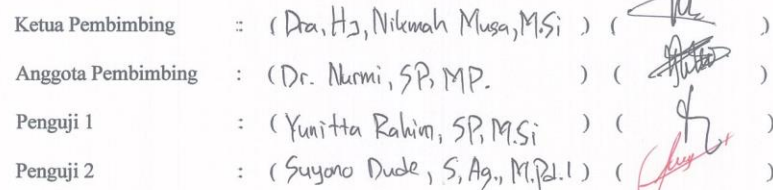 Ketua Pembimbing :: (Dra, Hj, Nikmah Musa, M.Si) ( )
Anggota Pembimbing : (Dr. Nurmi, SP, MP. ) ( )
Penguji 1 : (Yunitta Rahim, SP, M.Si ) ( )
Penguji 2 : (Suyono Dude, S, Ag., M.Pd.1) ( )